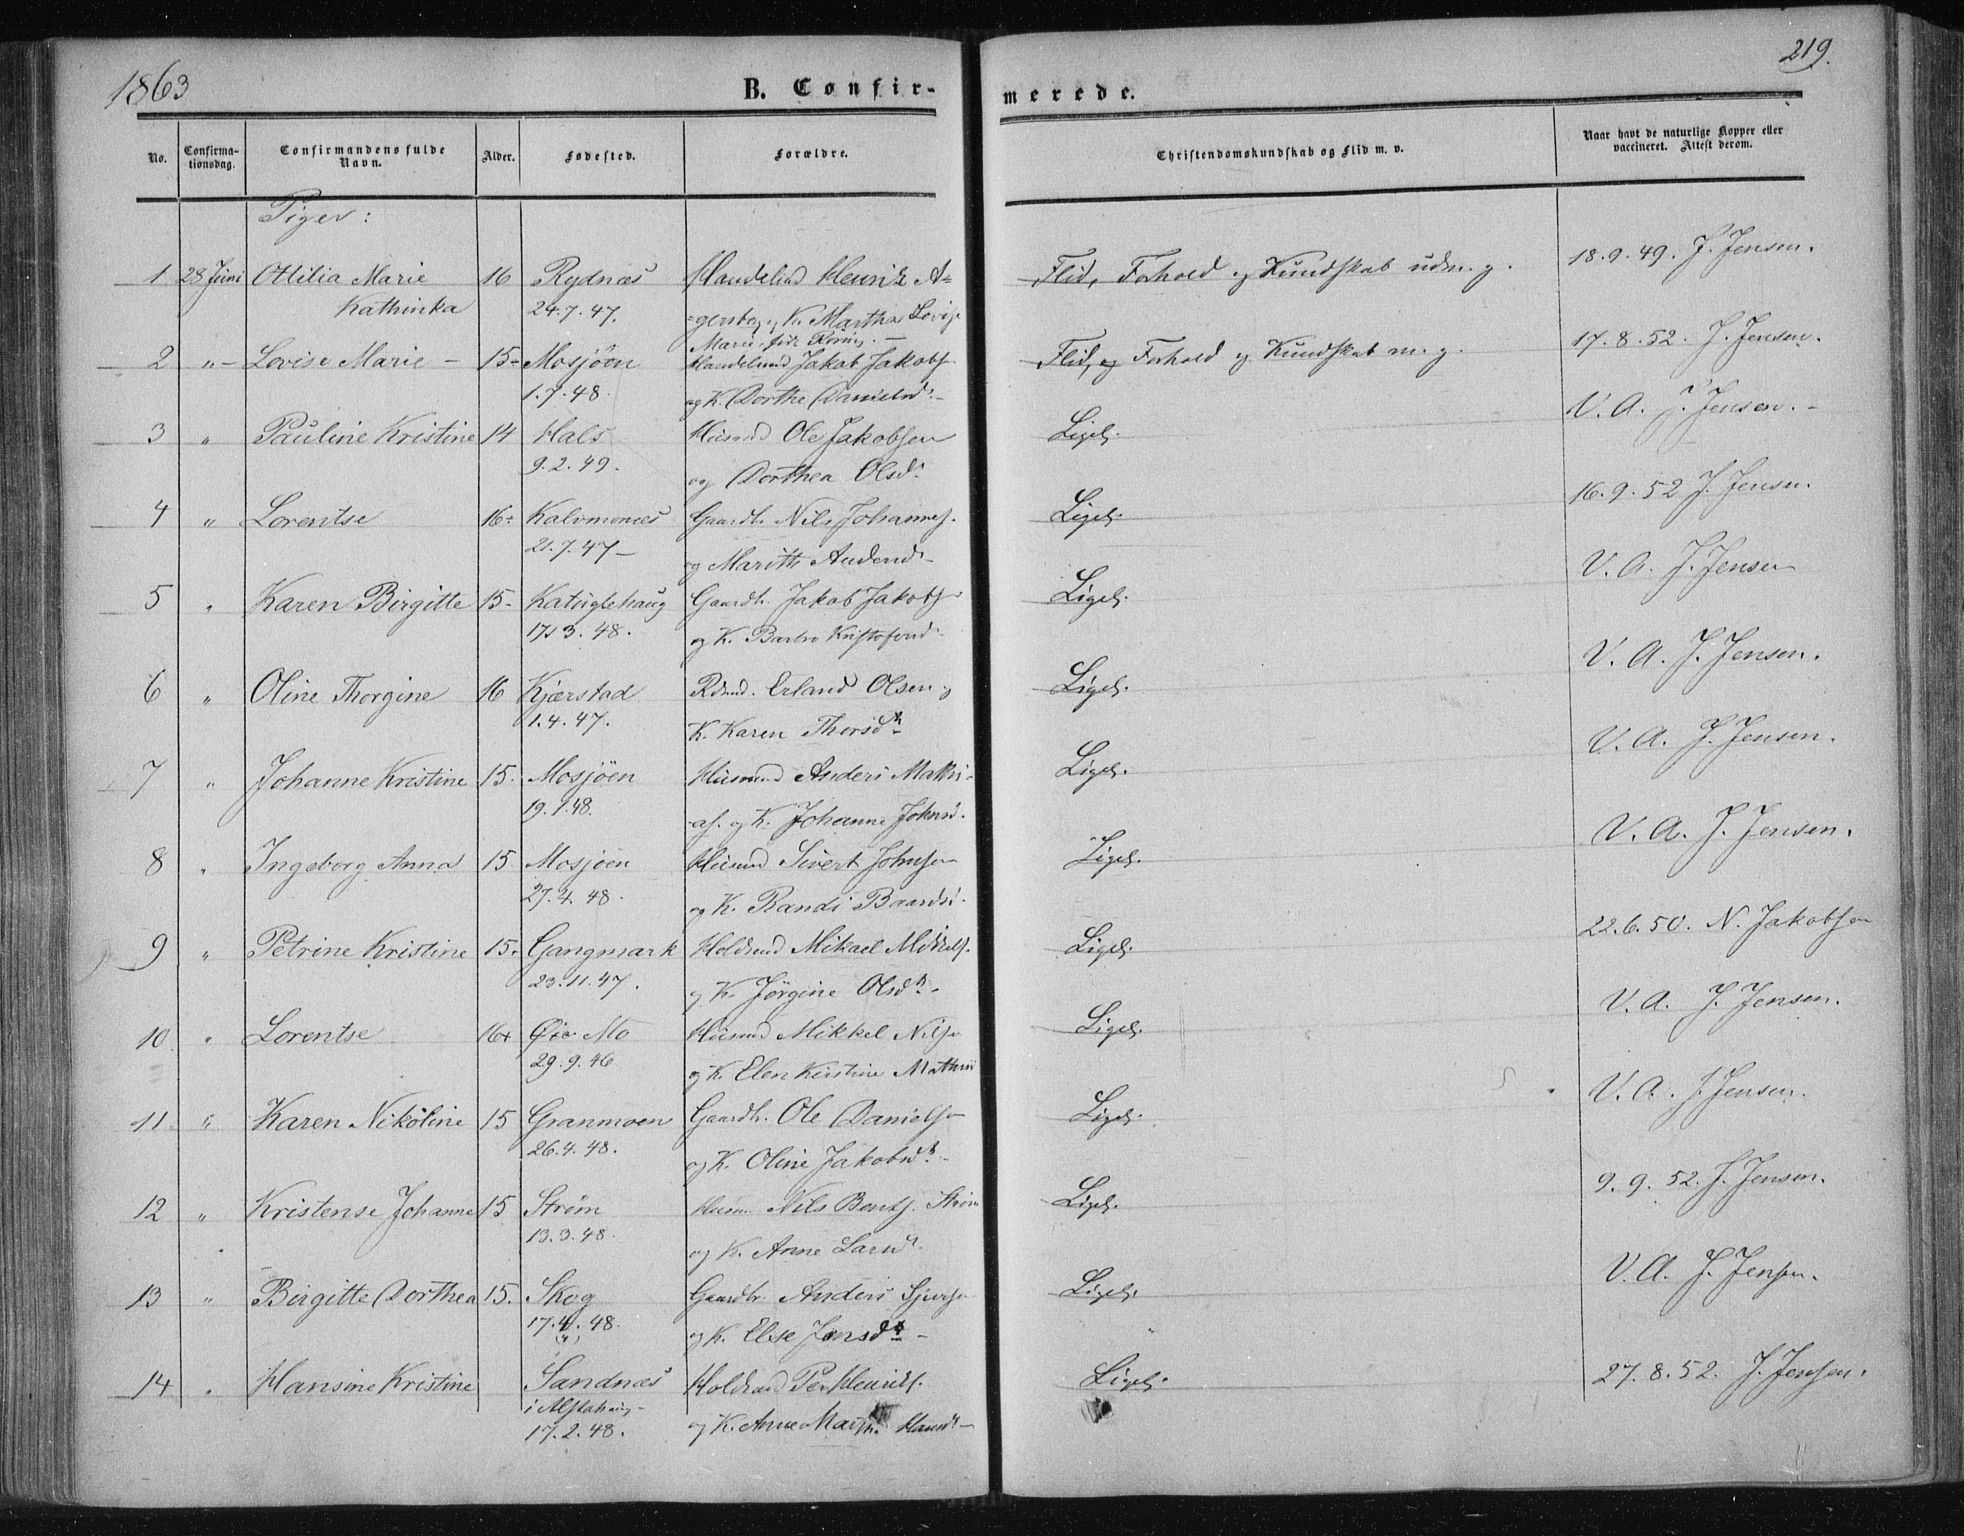 1863
B. Confir-
merede.
219.
No.
Confirma-
tionsdag.
Confirmandens fulde
Navn.
Alder.
Fødested.
Forældre.
Christendomskundskab og Flid m. v.
Naar havt de naturlige Kopper eller
vaccineret. Attest derom.
Piger:
1 28 Juni Ottilia Marie 16 Rydnæs Handelsmd Henrik A= Flid, Forhold og Kundskab udm. g. 18.9.49. J. Jensen.
Kathinka 24.7.47. K. Martha Lovise
Marie
2 "- Lovise Marie - 15- Mosjöen Handelsmd Jakob Jakobs. Flid, og Forhold og Kundskab m. g. 17.8.52. J. Jensen.
1.7.48. og K. Dorthe Danielsd.-
3 " Pauline Kristine 14 Hals Husmd Ole Jakobsen Ligel. V. A. J. Jensen.-
9.2.49. og Dorthea Olsd.
4 " Lorentse 16- Gaardb. Nils Johannes. Ligel. 16.9.52 J. Jensen.
21.7.47- og Marith Andersd.-
5 " Karen Birgitte 15- Katuglehaug Gaardb. Jakob Jakobs. Ligel. V. A. J. Jensen
17.3.48. og K. Barbro Kristofersd.
6 " Oline Thorgine 16 Kjærstad Erland Olsen og Ligel. V. A. J. Jensen.
1.4.47. K. Karen Thorsd.
7 " Johanne Kristine 15. Mosjöen Husmd Anders Mathi- Ligel. V. A. J. Jensen.
19.1.48. as. og K. Johanne Johnsd.
8 " Ingeborg Anna 15 Mosjöen Husmd Sivert Johnsen Ligel. V. A. J. Jensen.
27.4.48. og K. Randi Baardsd.
9 " Petrine Kristine 15. Gangmark Holdsmd Mikael Mikkels. Ligel. 22.6.50. N. Jakobsen
23.11.47. og K. Jørgine Olsd.-
10 " Lorentse 16+ Mo Husmd Mikkel Nilsen Ligel. V. A. J. Jensen.
29.9.46 og K. Elen Kirstine
11. " Karen Nikoline 15 Granmoen Gaardb. Ole Danielsen Ligel. V. A. J. Jensen.
26.4.48. og K. Oline Jakobsd.-
12 " Kristense Johanne 15 Strøm Husm. Nils Bents. Strøm Ligel. 9.9.52. J. Jensen.
13.3.48. og K. Anne Larsd.
13 " Birgitte Dorthea 15. Skog Gaardbr. Anders Ligel. V. A. J. Jensen.
17.4.48. og K. Else Jensd.-
(4)
14 " Hansine Kristine Sandnæs Holdsmd Per Henriks. Ligel. 27.8.52. J. Jensen.
i Alstahaug-
17.2.48. og K. Anne Hansd.-